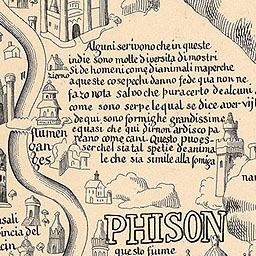 Alguni scrivono che in queste
indie sono molte diversita di mostri
si de homeni come di animali ma perche
a queste cose pochi danno fede qua non ne
fazo nota salvo che pur acerto de alcuni
come sono serpe le qual se dice aver
de qui sono formighe grandissime
e quasi che qui di non ardisco pa
reano come cani. Questo puo es-
ser che l sia tal spetie de animal
le che sia simile alla formiga
ziemo
flumen
gan
ges
PHISON
questo fiume